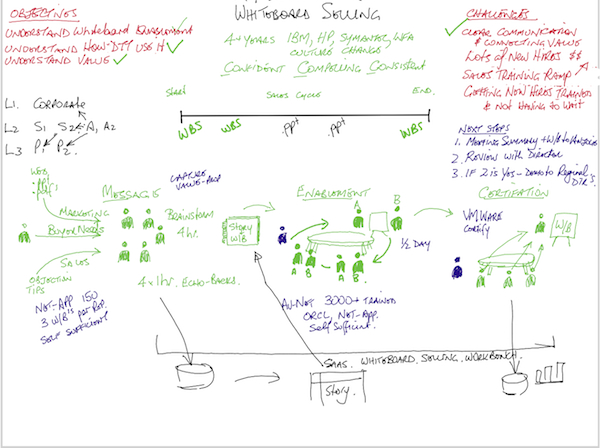 OBJECTIVES
UNDERSTAND Whiteboard Enablement
UNDERSTAND HOW-DTT USE IT
UNDERSTAND VALUE
WHITEBOARD SELLING
4+ YEARS IBM, HP, SYMANTEC,
CULTURE CHANGE
CONFIDENT COMPELLING CONSISTENT
CHALLENGES
CLEAR COMMUNICATION
& CONNECTING VALUE
LOTS OF NEW HIRES $$
SALES TRAINING RAMP
GETTING NEW HIRES TRAINED
& NOT HAVING TO WAIT
Start
SALES CYCLE
END.
WBS
WBS
.ppt
.ppt
WBS
L1. CORPORATE
L2 S1 S2 A1 A2
L3 P1 P2
NEXT STEPS
1. MEETING SUMMARY + W/B TO
2. REVIEW WITH DIRECTOR
3. IF 2 is YES - DEMO TO REGIONAL
DIR's
WEB
.ppt
MESSAGE
CAPTURE
VALUE-PROP
ENABLEMENT
CERTIFICATION
MARKETING
BUYER NEEDS
SALES
OBJECTION
TIPS
BRAINSTORM
4hr.
Story
W/B
A
B
A
B
A
B
1/2 DAY
VMWARE
CERTIFY
W/B
4 x 1hr. ECHO-BACKS.
NET-APP 150
3 W/B's per Rep
SELF SUFFICIENT
3000+ TRAINED
ORCL, NET-APP.
Self Sufficient.
SAAS. WHITEBOARD SELLING WORKBENCH.
Story.